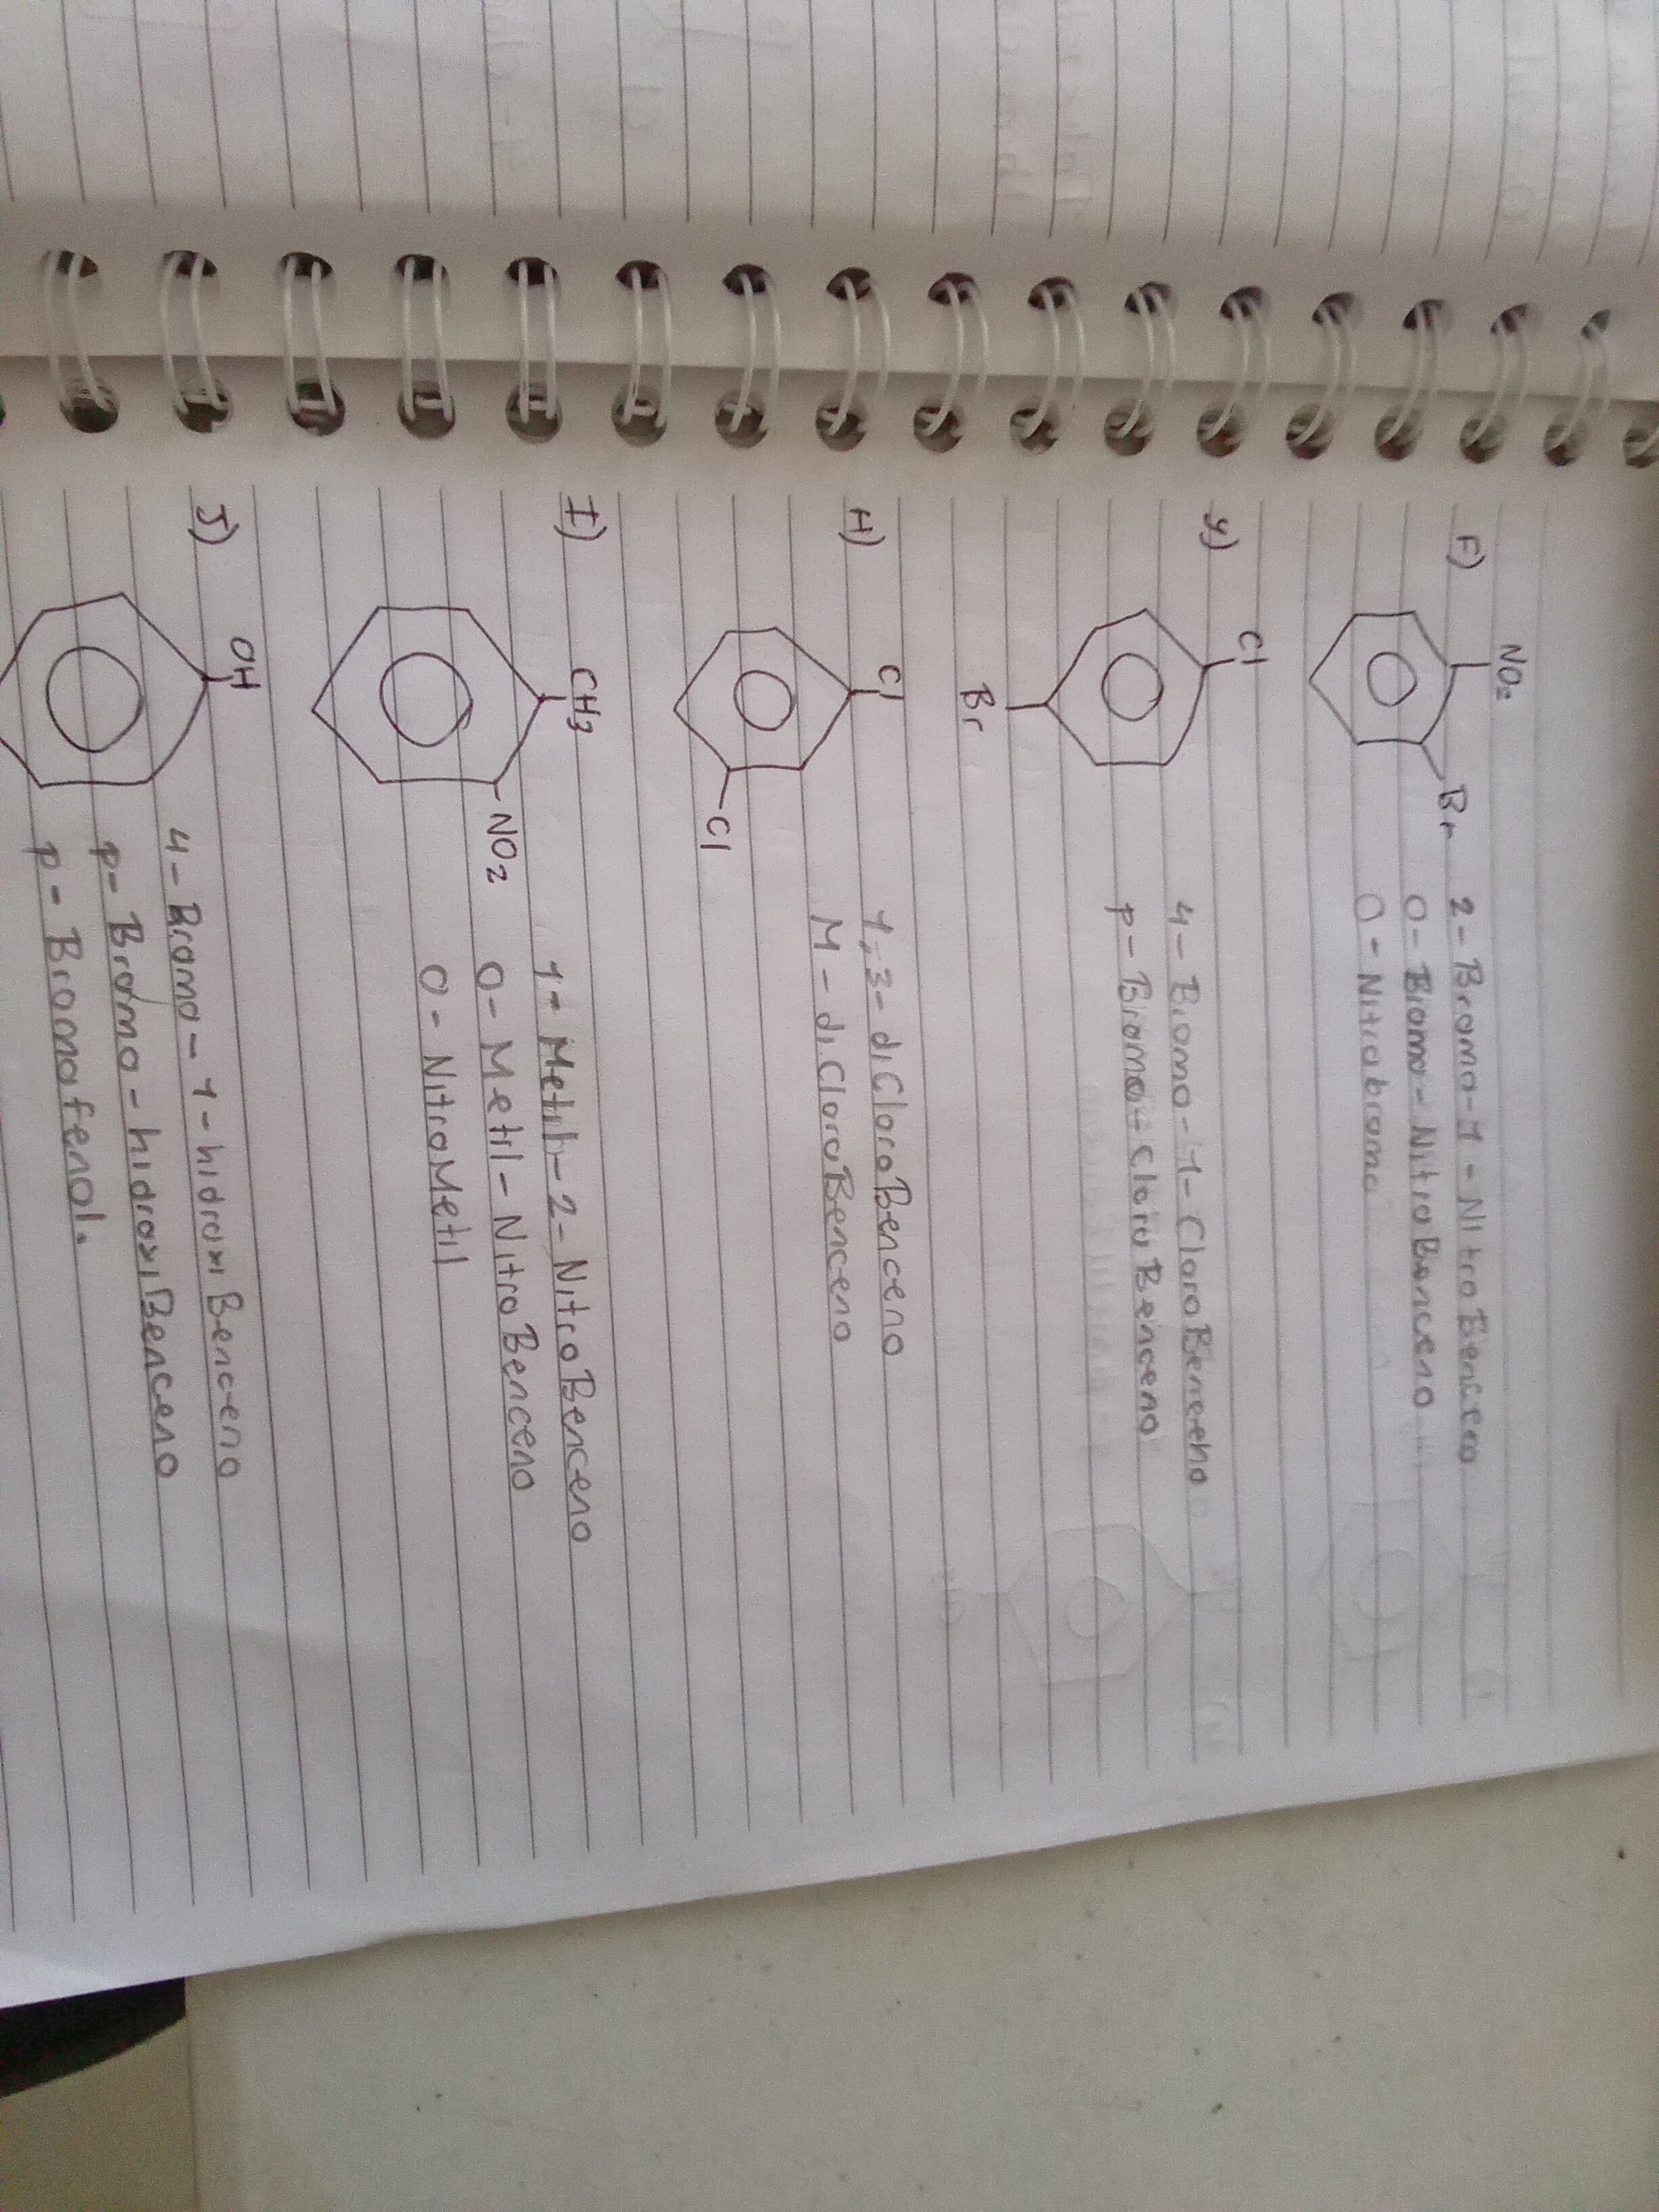 F)
NO₂
Br
2-Bromo-1-NitroBenceno
O-Bromo-NitroBenceno
O-Nitrobromo
g)
Cl
Br
4-Bromo-1-CloroBenceno
p-Bromo-CloroBenceno
H)
Cl
Cl
1,3-diCloroBenceno
M-diCloroBenceno
I)
CH₃
NO₂
1-Metil-2-NitroBenceno
O-Metil-NitroBenceno
O-NitroMetil
J)
OH
4-Bromo-1-hidroxiBenceno
p-Bromo-hidroxiBenceno
p-Bromofenol.